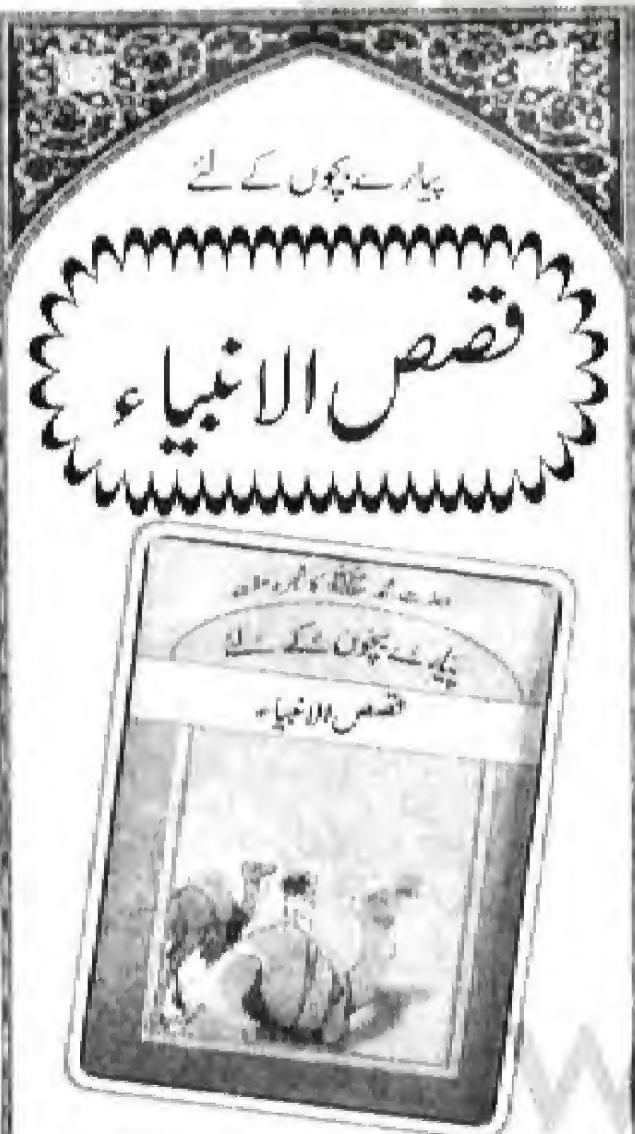 پیارے بچوں کے لئے
قصص الانبیاء
پیارے بچوں کے لئے
قصص الانبیاء